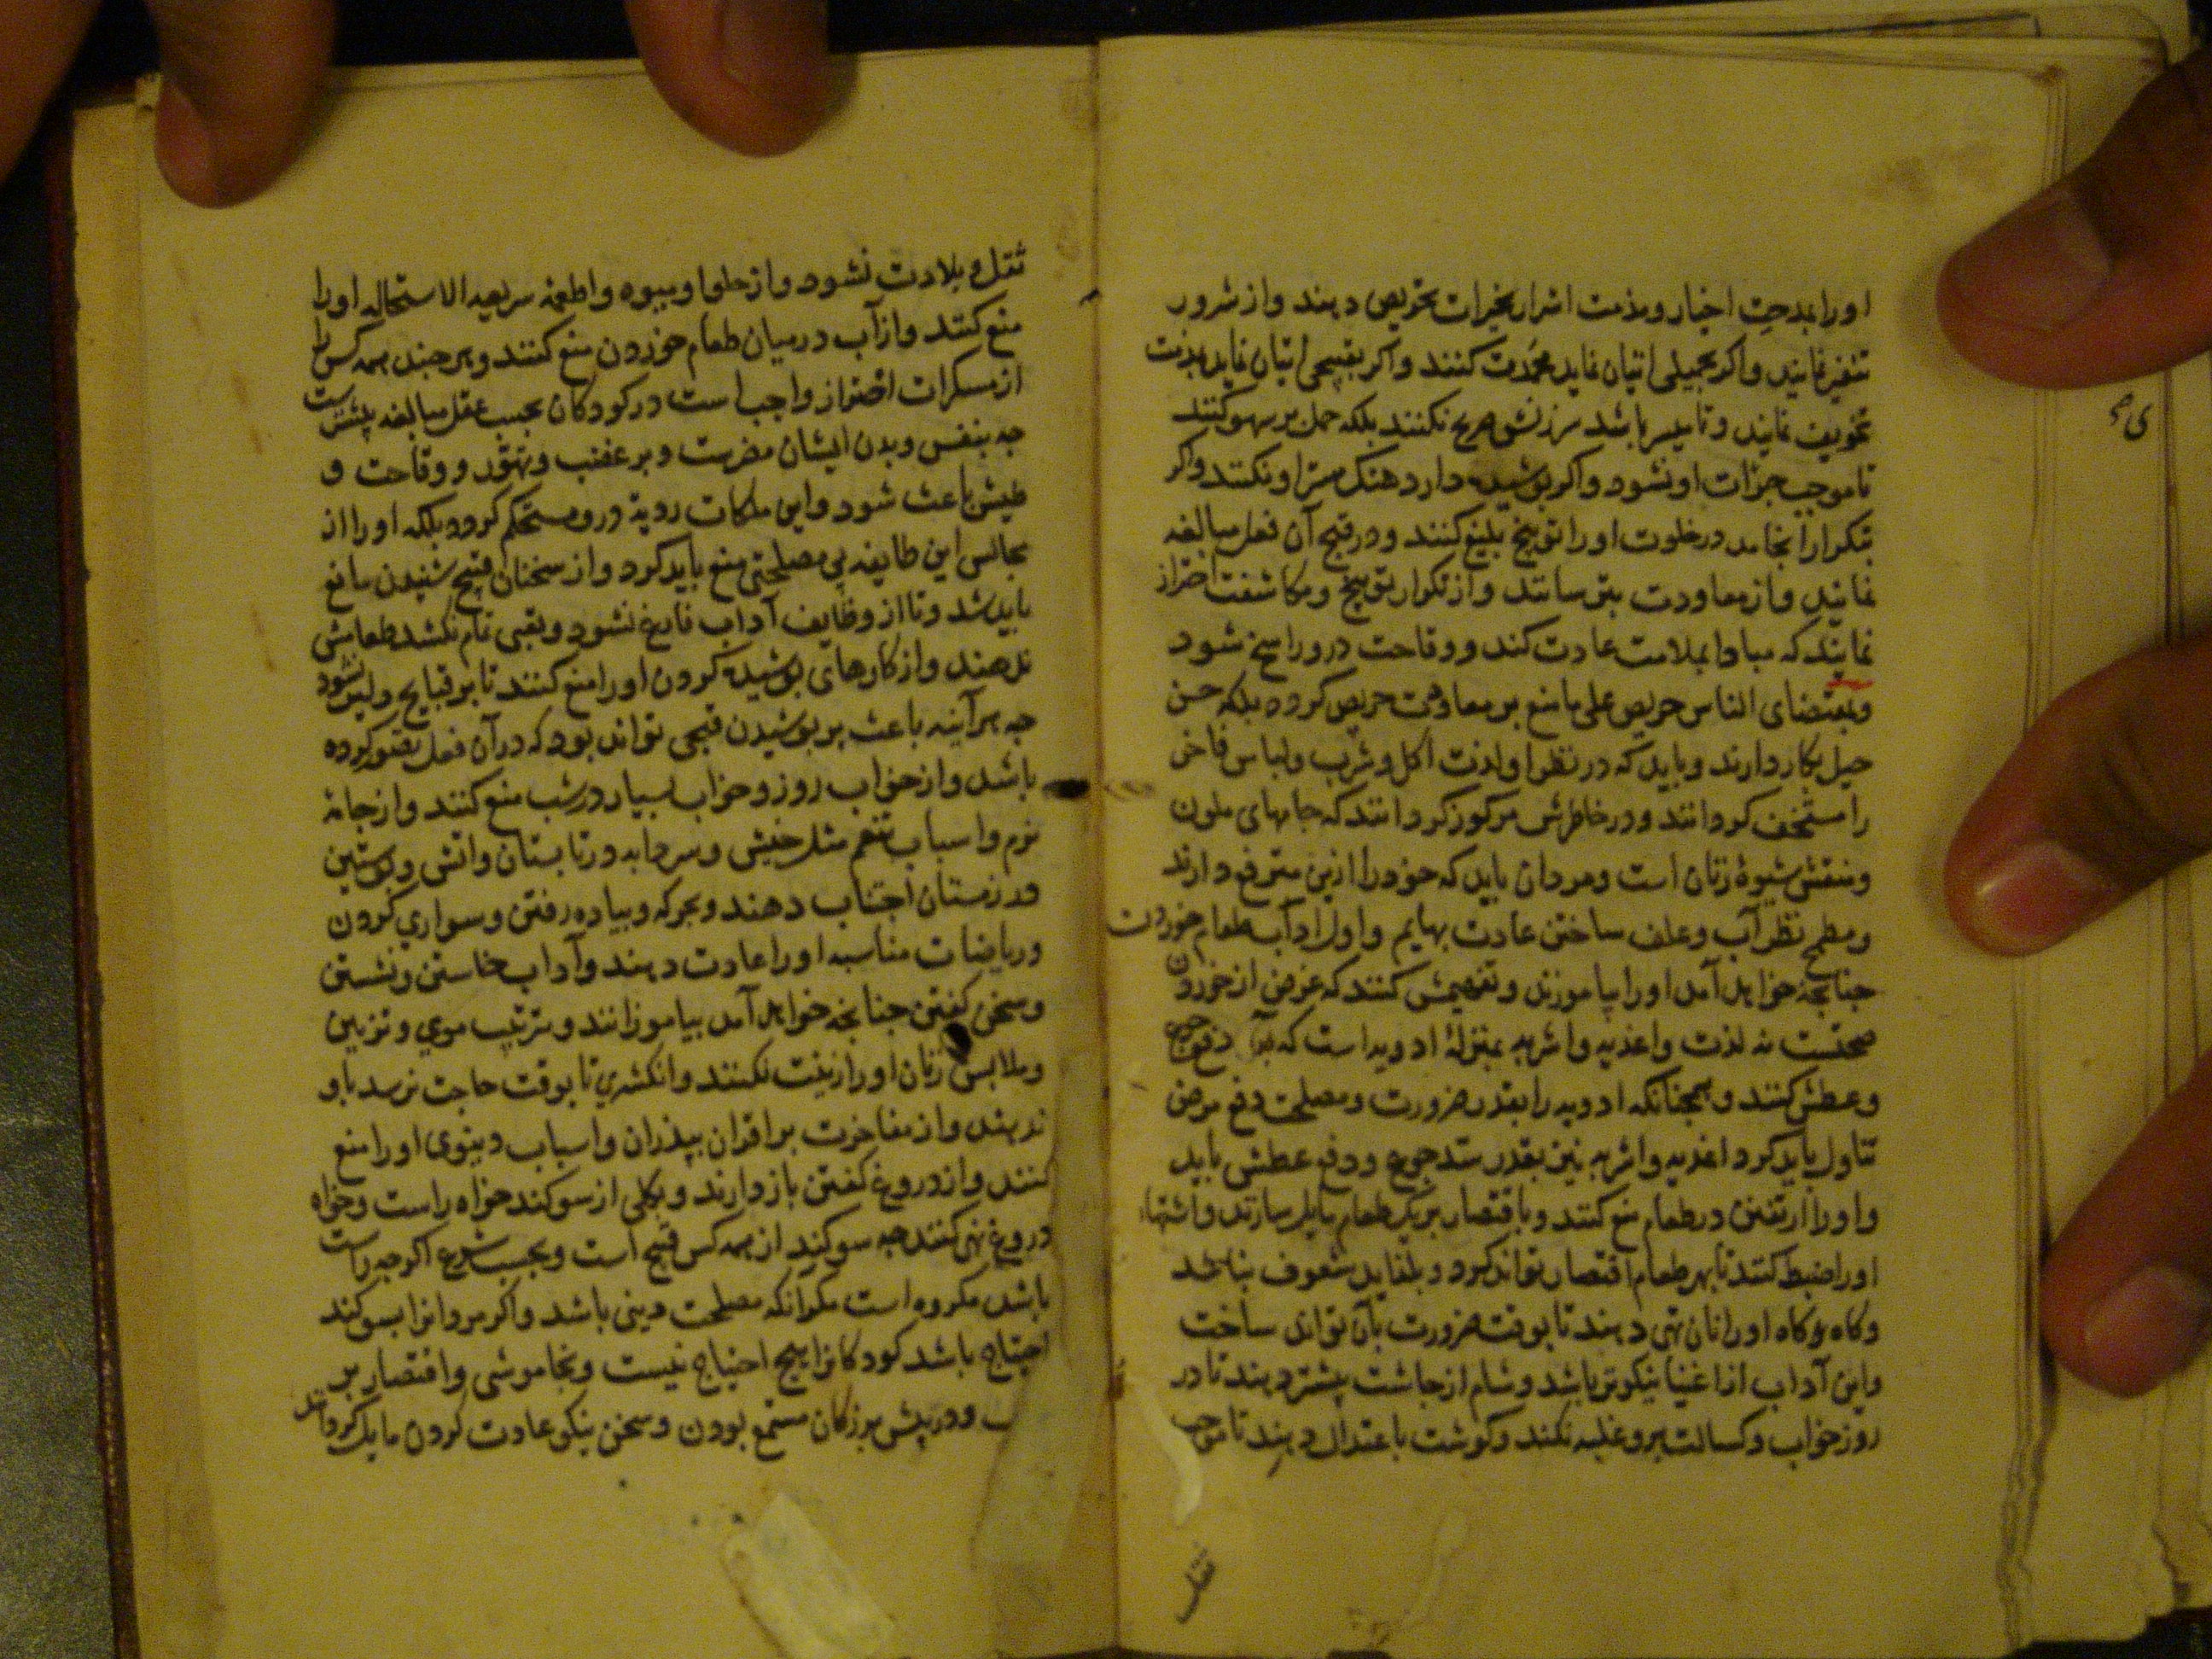 او را بمدحت اخیار و مذمت اشرار بخیرات تحریص دهند و از شرور
تنفیر نمایند و اگر بجمیلی اتیان نماید محمدت کنند و اگر بقبیحی اتیان نماید بمذمت
تخویف نمایند و تا میسر باشد سرزنش صریح نکنند بلکه حمل بر سهو کنند
تا موجب جرأت او نشود و اگر پوشیده دارد هتک ستر او نکنند و اگر
تکرار انجامد در خلوت او را توبیخ بلیغ کنند و در قبح آن فعل مبالغه
نمایند و از معاودت بترسانند و از تکرار توبیخ و مکاشفت احتراز
نمایند که مبادا بملامت عادت کند و وقاحت درو راسخ شود
و بمقتضای الناس حریص علی ما منع بر معاودت حریص کردد بلکه حسن
حیل بکار دارند و باید که در نظر او لذت اکل و شرب و لباس فاخر
را مستخف کردانند و در خاطرش مرکوز کردانند که جامهای ملون
و منقش شیوهٔ زنان است و مردان باید که خود را ازین مترفع دارند
و مطمح نظر آب و علف ساختن عادت بهایم و اول اداب طعام خوردن
جنانجه خواهد آمد او را بیاموزند و تفهیمش کنند که غرض از خوردن
صحتست نه لذت و اغذیه و اشربه بمنزلهٔ ادویه است که بآن دفع جوع
و عطش کنند و همجنانکه ادویه را بقدر ضرورت و مصلحت دفع مرض
تناول باید کرد اغذیه و اشربه نیز بقدر سد جوع و دفع عطش باید
و او را از تفنن در طعام منع کنند و باقتصار بر یک طعام مایل سازند و اشتهاء
او را ضبط کنند تا بهر طعام اقتصار تواند کرد و بلذاید شعوف نباشد
و کاه و کاه او را نان تهی دهند تا بوقت ضرورت بآن تواند ساخت
و این آداب از اغنیا نیکوتر باشد و شام از جاشت بیشتر دهند تا در
روز خواب و کسالت برو غلبه نکند و کوشت باعتدال دهند تا موجب
ثقل
ثقل و بلادت نشود و از حلوا و میوه و اطعمه سریعه الاستحاله او را
منع کنند و از آب در میان طعام خوردن منع کنند و هر جند همه کس را
از مسکرات احتراز واجب است در کودکان بحسب عقل مبالغه بیشترست
جه بنفس و بدن ایشان مضرست و بر غضب و تهور و وقاحت و
طیش باعث شود و این ملکات ردیه درو مستحکم کردد بلکه او را از
مجالس این طایفه بی مصلحتی منع باید کرد و از سخنان قبیح شنیدن مانع
باید شد و تا از وظایف آداب فارغ نشود و تعبی تمام نکشد طعامش
ندهند و از کارهای پوشیده کردن او را منع کنند تا بر قبایح دلیر نشود
جه هرآینه باعث بر پوشیدن قبحی تواند بود که در آن فعل تصور کرده
باشد و از خواب روز و خواب بسیار در شب منع کنند و از جامهٔ
نرم و اسباب تنعم مثل خیش و سردابه در تابستان و اتش و پوستین
در زمستان اجتناب دهند و بحرکه و پیاده رفتن و سواری کردن
و ریاضات مناسبه او را عادت دهند و آداب خاستن و نشستن
و سخن کفتن جنانجه خواهد آمد بیاموزانند و بترتیب موی و تزیین
و ملابس زنان او را زینت نکنند و انکشتری تا بوقت حاجت نرسد باو
ندهند و از مفاخرت بر اقران بپدران و اسباب دینوی او را منع
کنند و از دروغ کفتن باز دارند و بکلی از سوکند خواه راست و خواه
دروغ نهی کنند جه سوکند از همه کس قبیح است و بحسب شرع اکرجه راست
باشد مکروه است مکر آنکه مصلحت دینی باشد و اکر مردانرا بسوکند
احتیاج باشد کودکانرا هیج احتیاج نیست و بخاموشی و اقتصار بر
و در پیش بزرکان مستمع بودن و سخن نیکو عادت کردن مایل کردانند